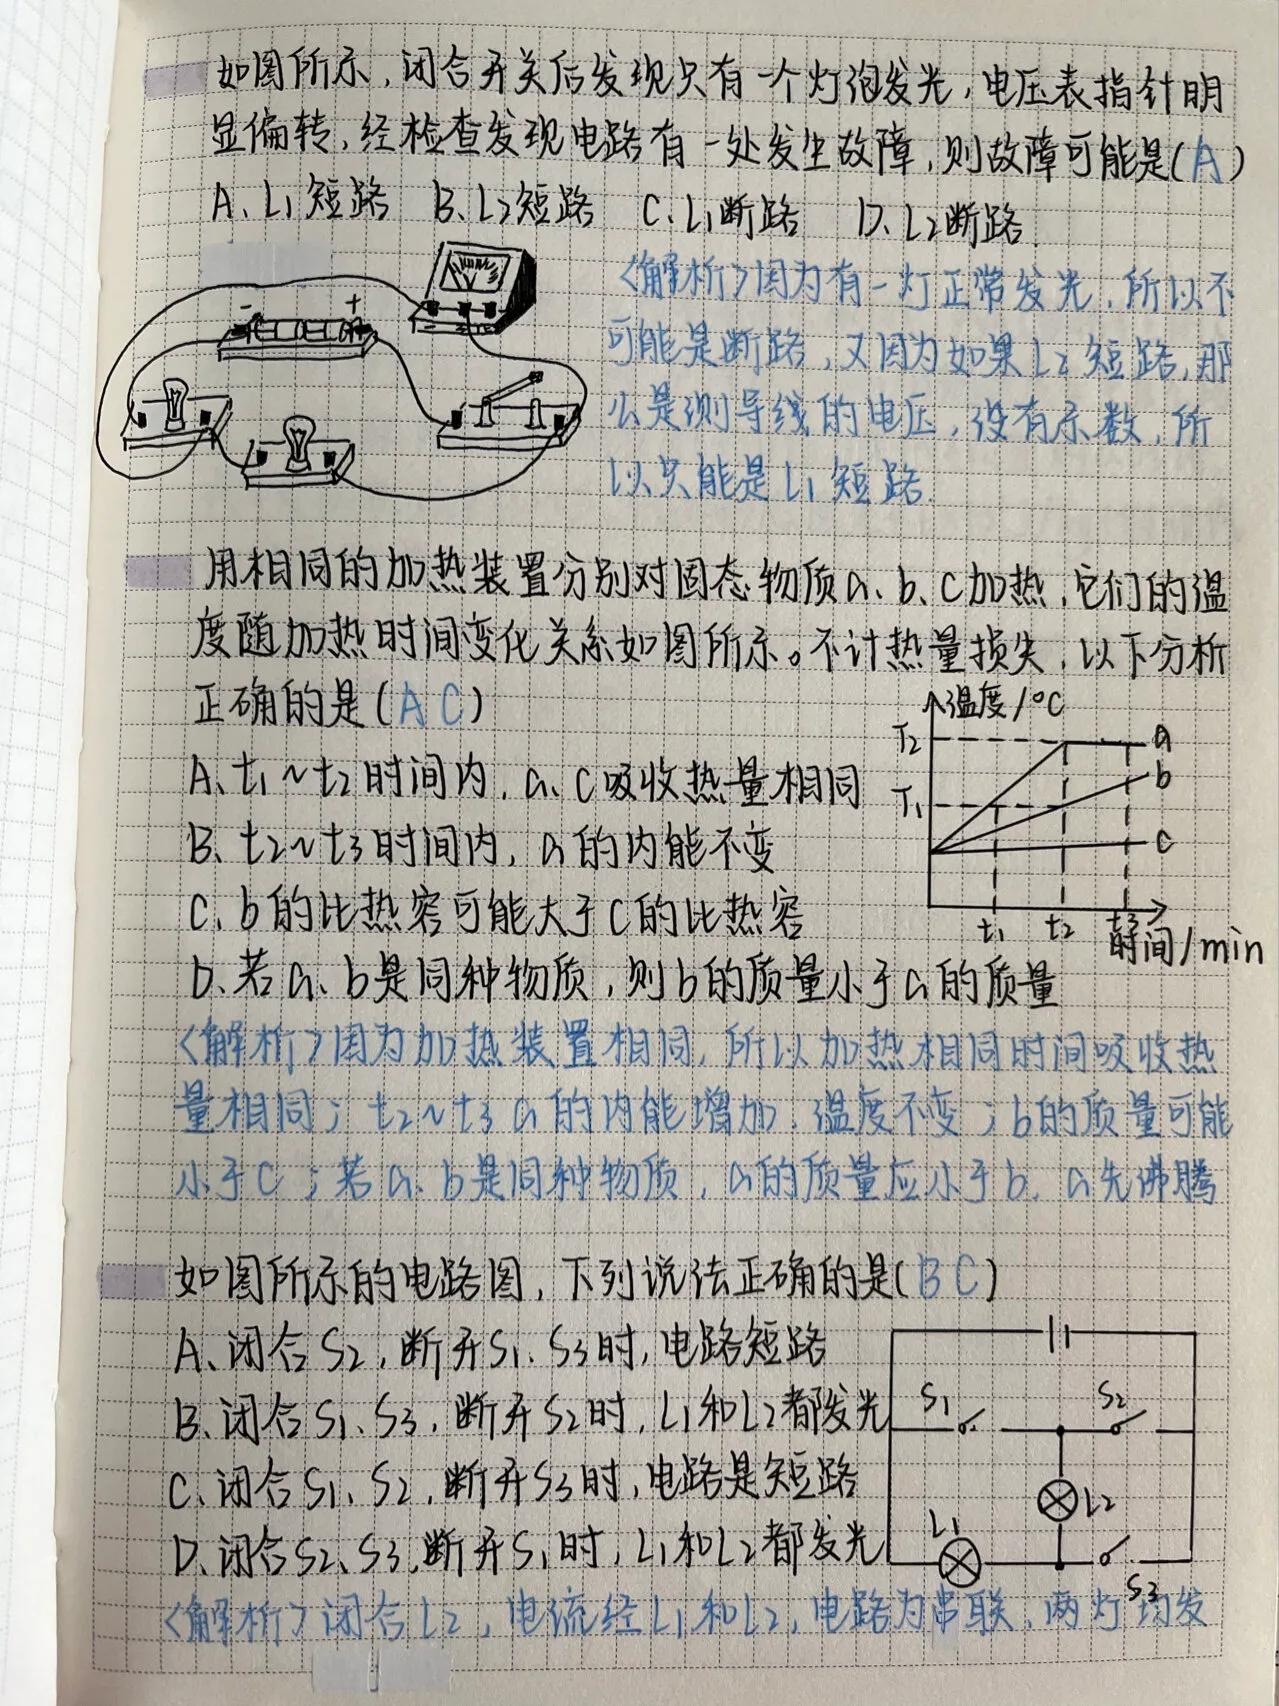 如图所示，闭合开关后发现只有一个灯泡发光，电压表指针明
显偏转，经检查发现电路有一处发生故障，则故障可能是(A)
A、L₁短路 B、L₂短路 C、L₁断路 D、L₂断路
- +
<解析>因为有一灯正常发光，所以不
可能是断路，又因为如果L₂短路，那
么是测导线的电压，没有示数，所
以只能是L₁短路
用相同的加热装置分别对固态物质a、b、c加热，它们的温
度随加热时间变化关系如图所示。不计热量损失，以下分析
正确的是(AC)
温度/°C
T₂ a
b
T₁
c
t₁ t₂ t₃
时间/min
A、t₁~t₂时间内，a、c吸收热量相同
B、t₂~t₃时间内，a的内能不变
C、b的比热容可能大于c的比热容
D、若a、b是同种物质，则b的质量小于a的质量
<解析>因为加热装置相同，所以加热相同时间吸收热
量相同；t₂~t₃a的内能增加，温度不变；b的质量可能
小于C；若a、b是同种物质，a的质量应小于b，a先沸腾
如图所示的电路图，下列说法正确的是(BC)
A、闭合S₂，断开S₁、S₃时，电路短路
B、闭合S₁、S₃，断开S₂时，L₁和L₂都发光
C、闭合S₁、S₂，断开S₃时，电路是短路
D、闭合S₂、S₃，断开S₁时，L₁和L₂都发光
S₁ S₂
L₂
L₁
S₃
<解析>闭合L₂，电流经L₁和L₂，电路为串联，两灯均发